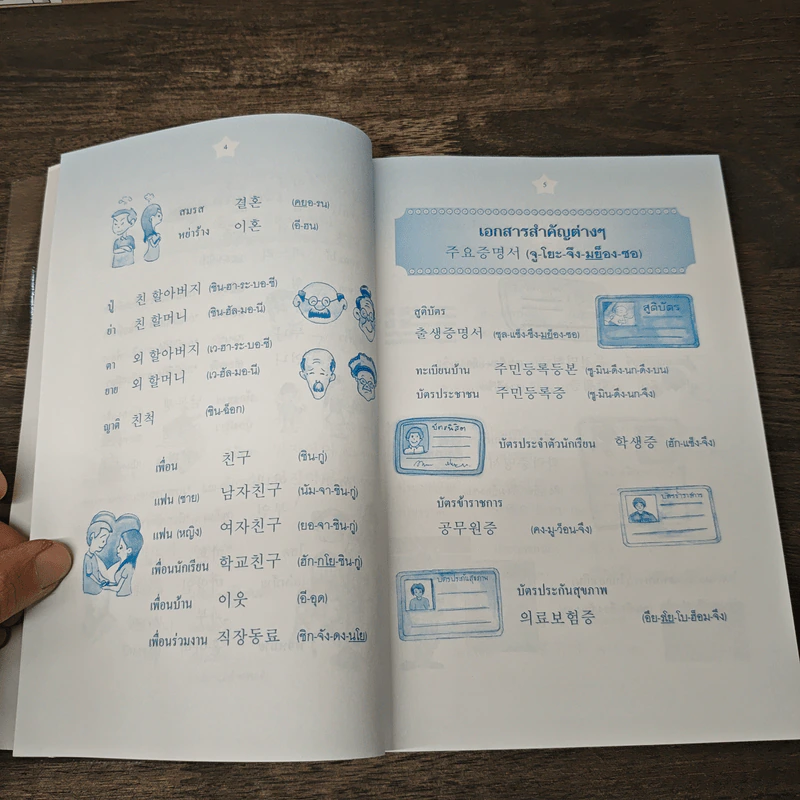 4
สมรส 결혼 (คยอ-รน)
หย่าร้าง 이혼 (อี-ฮน)
ปู่ 친 할아버지 (ชิน-ฮา-ระ-บอ-ชี)
ย่า 친 할머니 (ชิน-ฮัล-มอ-นี)
ตา 외 할아버지 (เว-ฮา-ระ-บอ-ชี)
ยาย 외 할머니 (เว-ฮัล-มอ-นี)
ญาติ 친척 (ชิน-ฉ็อก)
เพื่อน 친구 (ชิน-กู่)
แฟน (ชาย) 남자친구 (นัม-จา-ชิน-กู่)
แฟน (หญิง) 여자친구 (ยอ-จา-ชิน-กู่)
เพื่อนนักเรียน 학교친구 (ฮัก-กโย-ชิน-กู่)
เพื่อนบ้าน 이웃 (อี-อุด)
เพื่อนร่วมงาน 직장동료 (ชิก-จัง-ดง-นโย)
5
เอกสารสำคัญต่างๆ
주요증명서 (จู-โยะ-จึง-มย็อง-ซอ)
สูติบัตร
출생증명서 (ชุล-แซ็ง-ชึง-มย็อง-ซอ)
สูติบัตร
ทะเบียนบ้าน 주민등록등본 (ชู-มิน-ดึง-นก-ดึง-บน)
บัตรประชาชน 주민등록증 (ชู-มิน-ดึง-นก-จึง)
บัตรนิสิต
บัตรประจำตัวนักเรียน 학생증 (ฮัก-แซ็ง-จึง)
บัตรข้าราชการ
공무원증 (คง-มู-ว็อน-จึง)
บัตรข้าราชการ
บัตรประกันสุขภาพ
บัตรประกันสุขภาพ
의료보험증 (อึย-รโย-โบ-ฮ็อม-จึง)